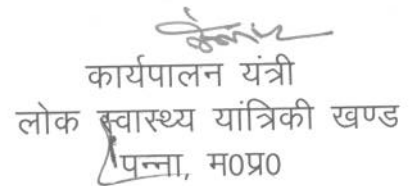 कार्यपालन यंत्री
लोक स्वास्थ्य यांत्रिकी खण्ड
पन्ना, म0प्र0